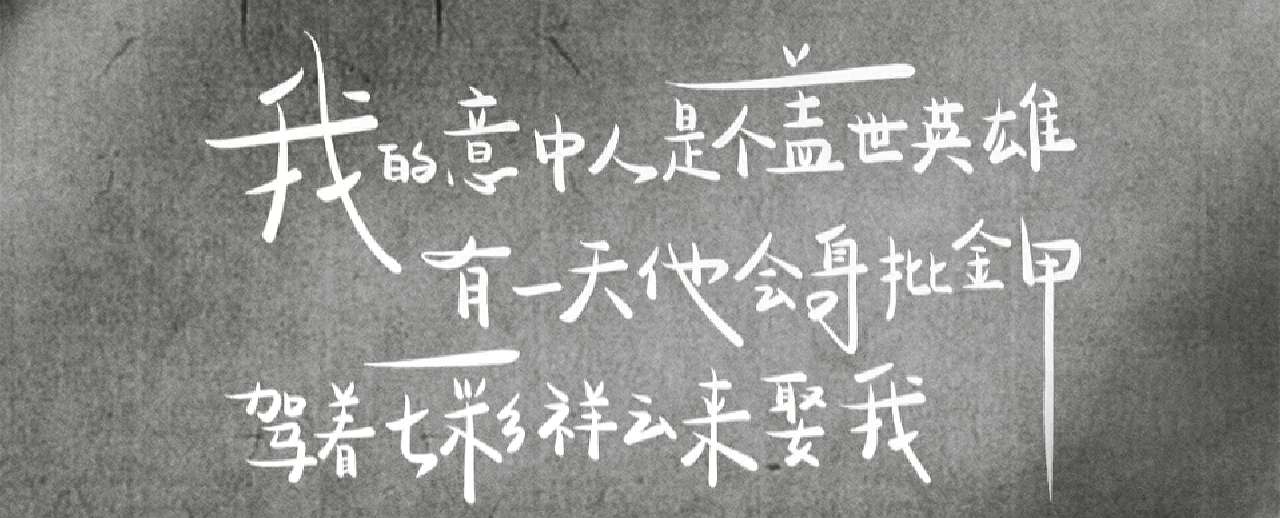 我的意中人是个盖世英雄
有一天他会身批金甲
驾着七彩祥云来娶我